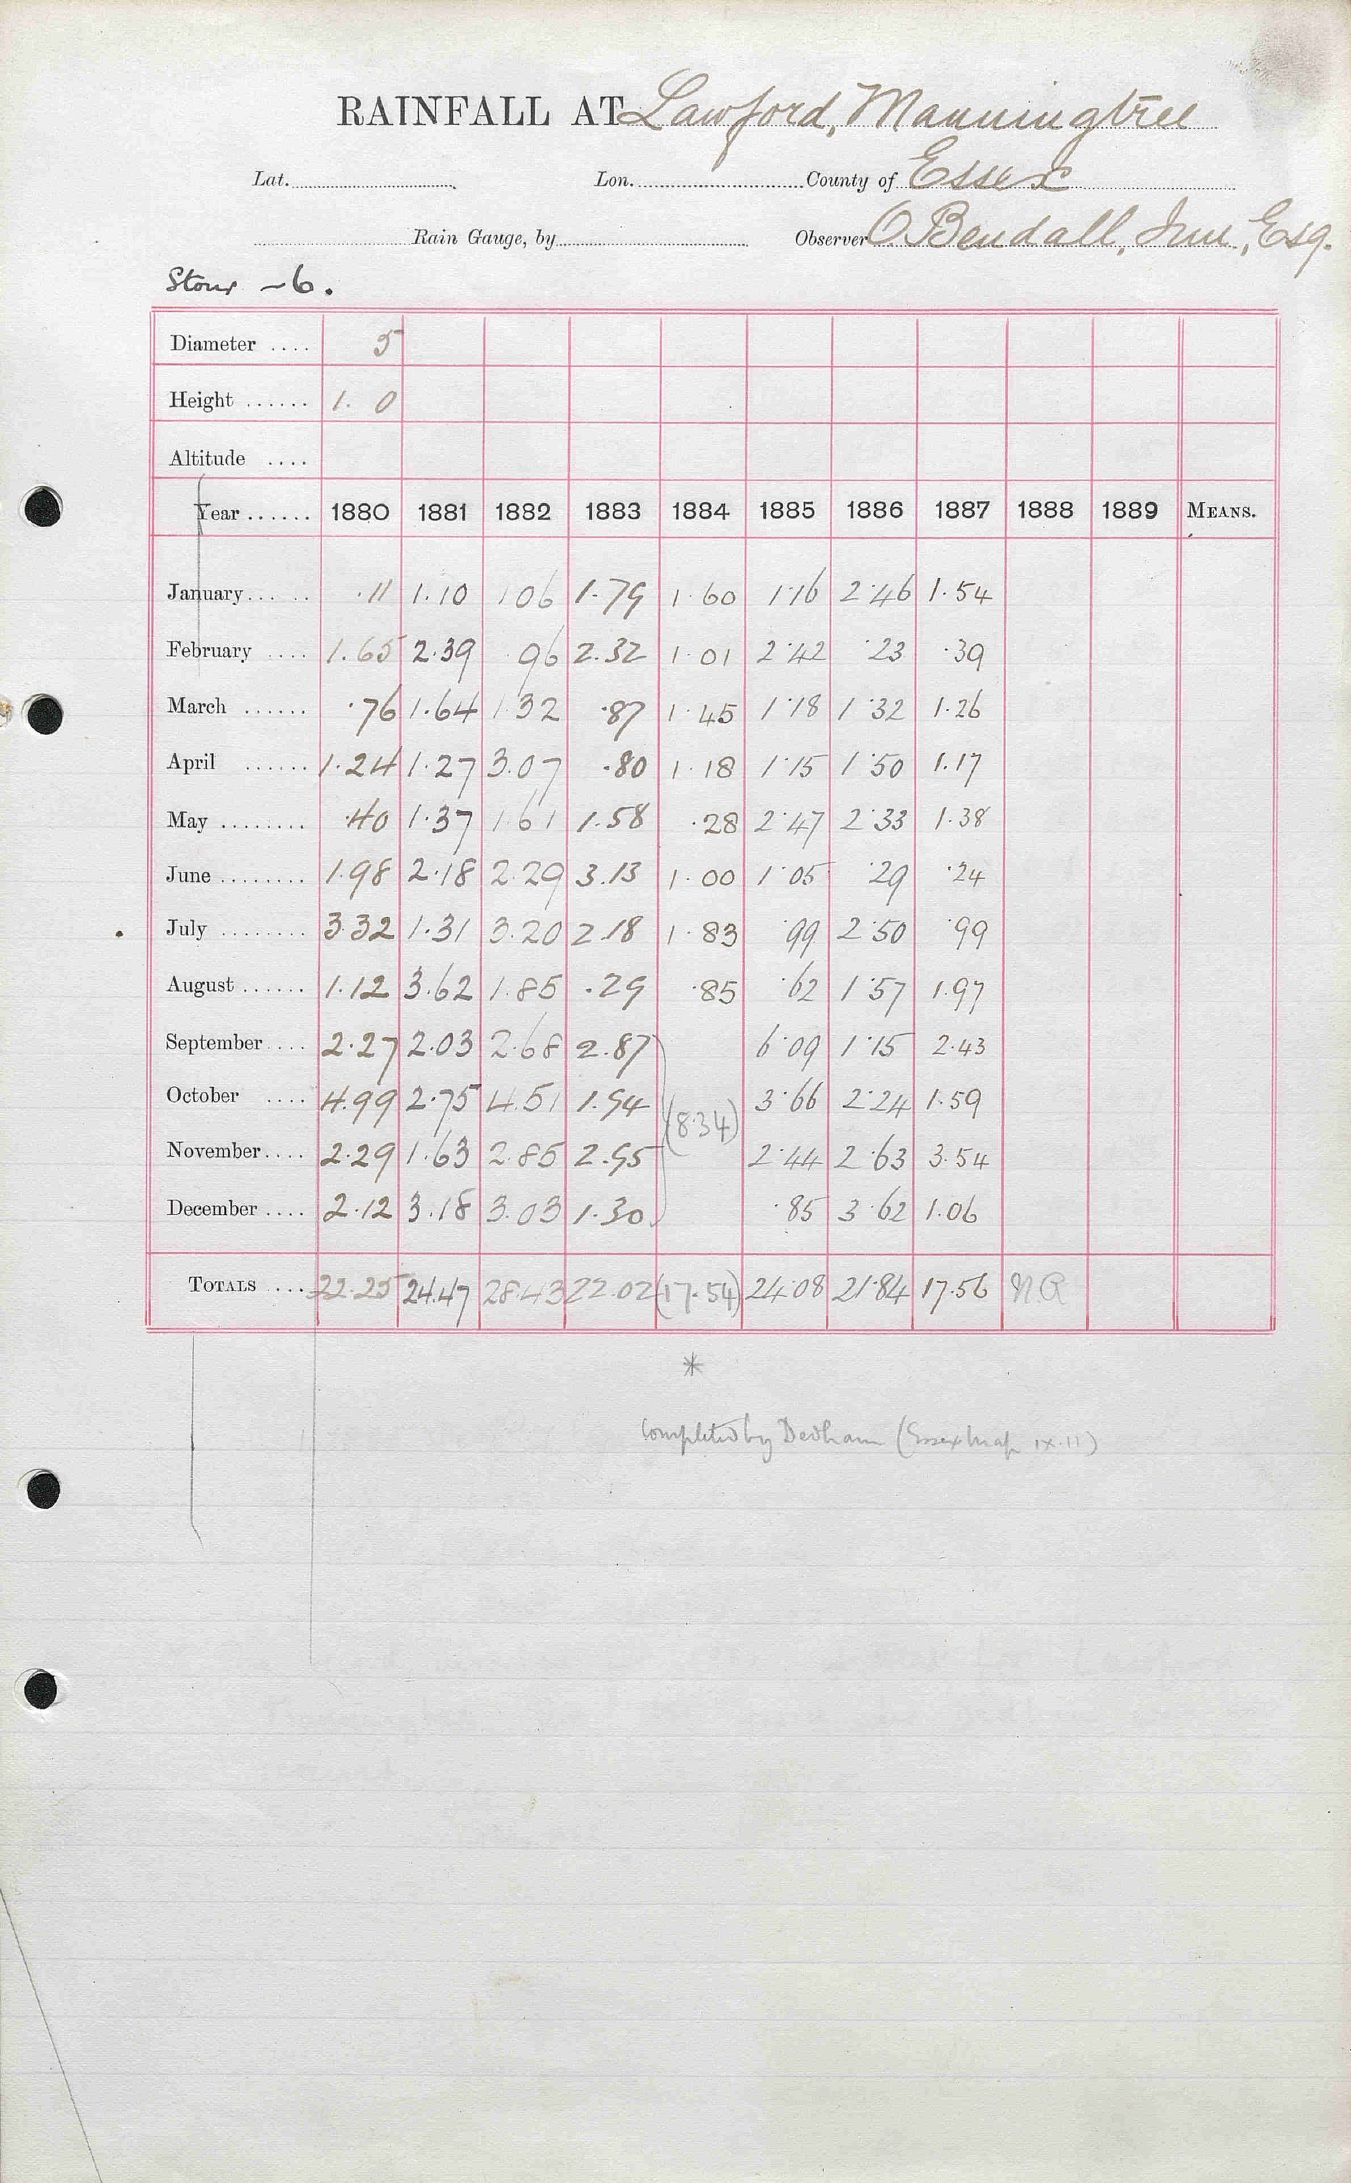 RAINFALL AT Lawford, Manningtree
Lat. Lon. County of Essex
Rain Gauge, by Observer O Bendall, Junr., Esq.
Stour ~6.
Diameter .... 5
Height ...... 1. 0
Altitude ....
Year ...... 1880 1881 1882 1883 1884 1885 1886 1887 1888 1889 MEANS.
January ..... .11 1.10 1 06 1.79 1.60 1.16 2.46 1.54
February .... 1.65 2.39 96 2.32 1.01 2.42 .23 .39
March ...... .76 1.64 1.32 .87 1.45 1.18 1.32 1.26
April ...... 1.24 1.27 3.07 .80 1.18 1.15 1.50 1.17
May ........ .40 1.37 1.61 1.58 .28 2.47 2.33 1.38
June ........ 1.98 2.18 2.29 3.13 1.00 1.05 .29 .24
July ........ 3.32 1.31 3.20 2.18 1.83 .99 2.50 .99
August ...... 1.12 3.62 1.85 .29 .85 .62 1.57 1.97
September .... 2.27 2.03 2.68 2.87 6.09 1.15 2.43
October .... 4.99 2.75 4.51 1.94 (8.34) 3.66 2.24 1.59
November .... 2.29 1.63 2.85 2.95 2.44 2.63 3.54
December .... 2.12 3.18 3.03 1.30 .85 3.62 1.06
TOTALS .... 22.25 24.47 28.43 22.02 (17.54) 24.08 21.84 17.56 N.R
*
Completed by Dedham (Essex Map IX.11)